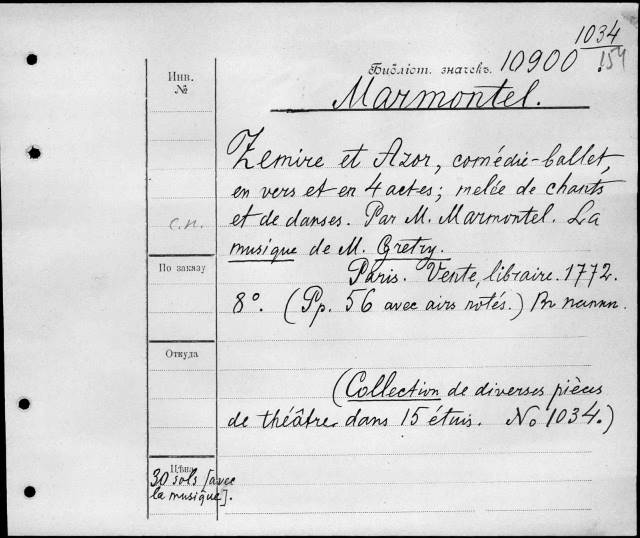 1034
Инв.
№
Библіот. значекъ. 10900. 154
Marmontel.
Zemire et Azor, comédie-ballet,
en vers et en 4 actes; melée de chants
c.n.
et de danses. Par M. Marmontel. La
musique de M. Gretry.
По заказу
Paris. Vente, libraire. 1772.
8°. (Pp. 56 avec airs notés.) Въ папкѣ.
Откуда
(Collection de diverses pièces
de théâtre dans 15 étuis. No 1034.)
Цѣна
30 sols [avec
la musique].